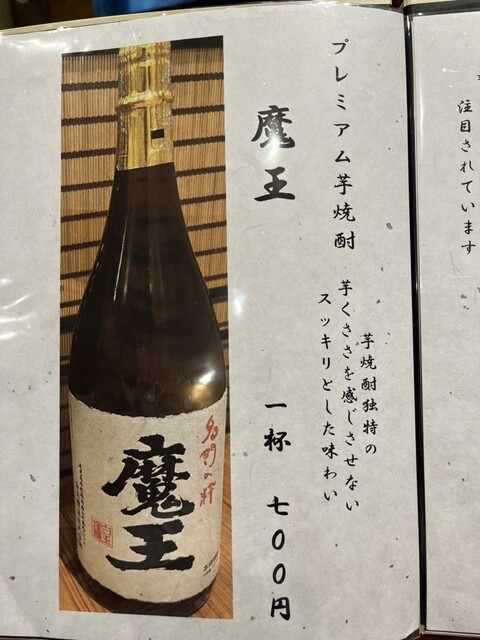 注目されています
プレミアム芋焼酎
魔王
芋焼酎独特の
芋くささを感じさせない
スッキリとした味わい
一杯 七００円
名門の粋
魔王